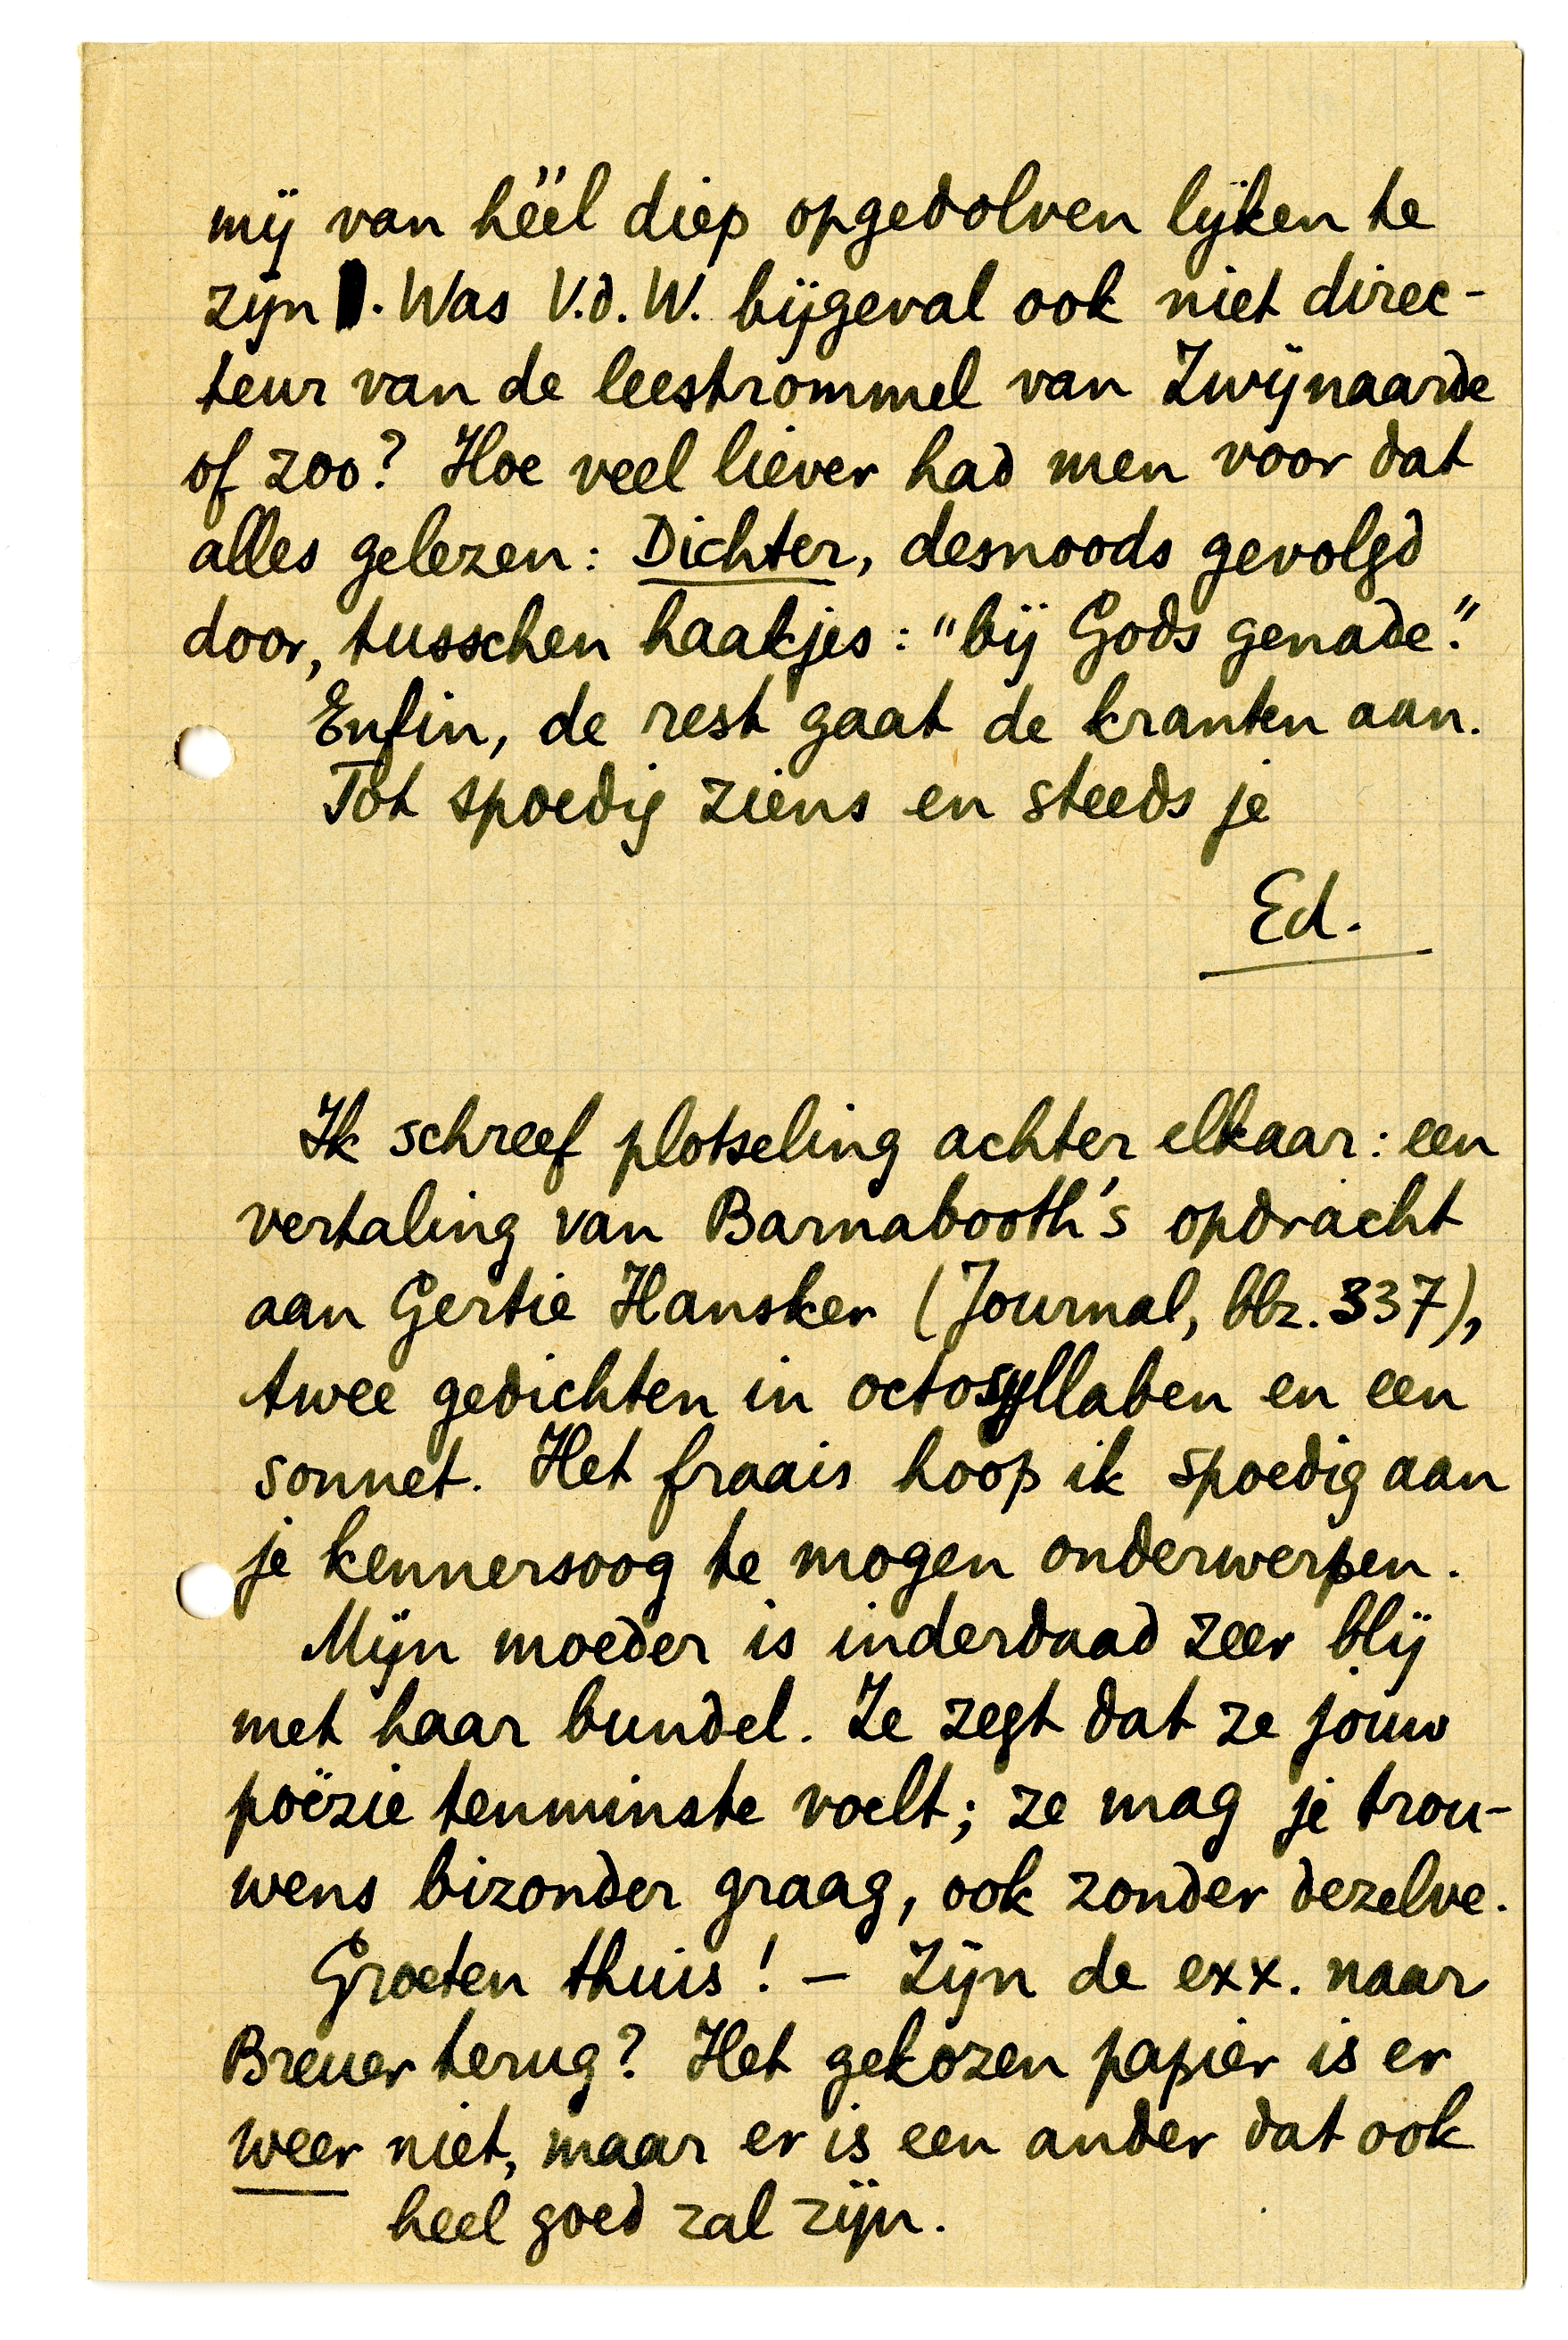 mij van héél diep opgedolven lijken te
zijn. Was V.d.W. bijgeval ook niet direc-
teur van de leestrommel van Zwijnaarde
of zoo? Hoe veel liever had men voor dat
alles gelezen: Dichter, desnoods gevolgd
door, tusschen haakjes: "bij Gods genade."
Enfin, de rest gaat de kranten aan.
Tot spoedig ziens en steeds je
Ed.
Ik schreef plotseling achter elkaar: een
vertaling van Barnabooth's opdracht
aan Gertie Hansker (Journal, blz. 337),
twee gedichten in octosyllaben en een
sonnet. Het fraais hoop ik spoedig aan
je kennersoog te mogen onderwerpen.
Mijn moeder is inderdaad zeer blij
met haar bundel. Ze zegt dat ze jouw
poëzie tenminste voelt; ze mag je trou-
wens bizonder graag, ook zonder dezelve.
Groeten thuis! — Zijn de exx. naar
Breuer terug? Het gekozen papier is er
weer niet, maar er is een ander dat ook
heel goed zal zijn.